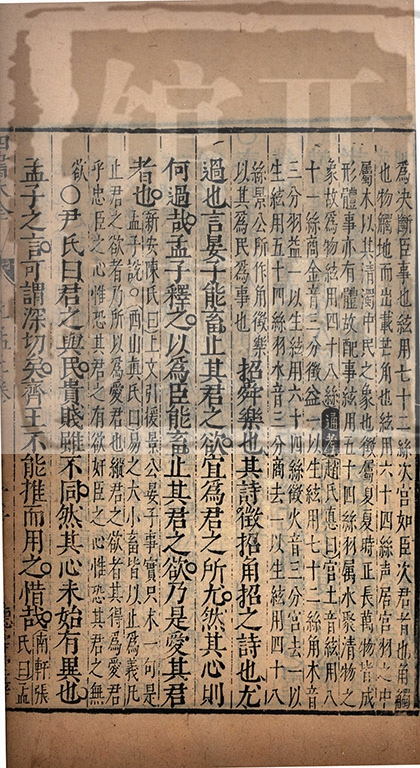 爲決斷臣事也絃用七十二絲次宮如臣次君者也角觸
也物觸地而出戴芒角也絃用六十四絲聲居宮羽之中
屬木以其清濁中民之象也徵屬夏夏時正長萬物皆成
形體事亦有體故配事絃用五十四絲羽屬水聚清物之
象故爲物絃用四十八絲通考趙氏悳曰宮土音絃用八
十一絲商金音三分徵益一以生絃用七十二絲角木音
三分羽益一以生絃用六十四絲徵火音三分宮去一以
生絃用五十四絲羽水音三分商去一以生絃用四十八
絲景公所作角徵樂
以其爲民爲事也
招舜樂也其詩徵招角招之詩也尤
過也言晏子能畜止其君之欲宜爲君之所尤然其心則
何過哉孟子釋之以爲臣能畜止其君之欲乃是愛其君
者也
新安陳氏曰上文引援景公晏子事實只末一句是
孟子說○西山眞氏曰易之大小畜皆以止爲義凡
止君之欲者乃所以爲愛君也縱君之欲者其得爲愛君
乎忠臣之心惟恐其君之有欲好臣之心惟恐其君之無
欲○尹氏曰君之與民貴賤雖不同然其心未始有異也
孟子之言可謂深切矣齊王不能推而用之惜哉
南軒張
氏曰孟